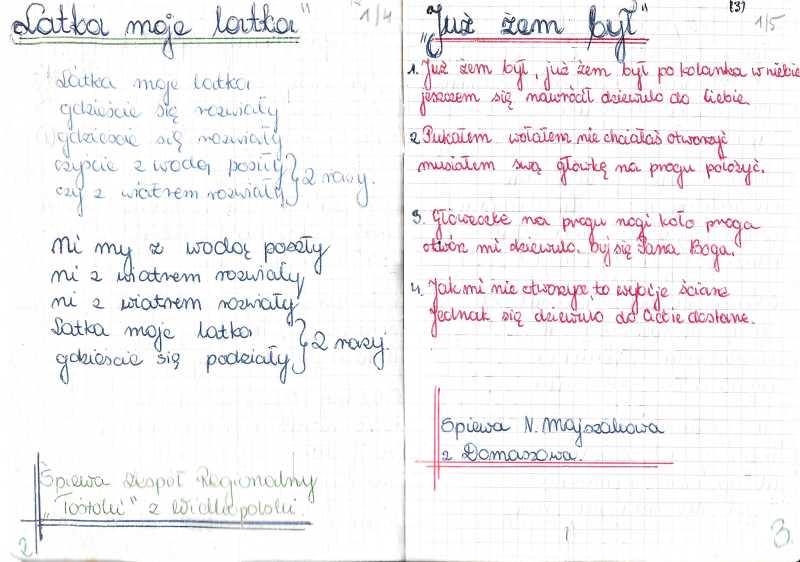 "Latka moje latka"
1/4
Latka moje latka
gdzieście się rozwiały
gdzieście się rozwiały
czyście z wodą poszły
czy z wiatrem rozwiały } 2 razy.
Ni my z wodą poszły
ni z wiatrem rozwiały
ni z wiatrem rozwiały
Latka moje latka
gdzieście się podziały } 2 razy.
Śpiewa Zespół Regionalny
z Wielkopolski.
2
"Już żem był"
(3)
1/5
1. Już żem był, już żem był po kolanka w niebie
jeszczem się nawrócił dziewulo do Ciebie.
2 Pukałem wołałem nie chciałaś otworzyć
musiałem swą główkę na progu położyć.
3. Główeczkę na progu nogi koło proga
otwórz mi dziewulo. bój się Pana Boga.
4. Jak mi nie otworzysz, to wybije ściane
Jednak się dziewulo do Ciebie dostane.
Śpiewa N. Majszakowa
z Domaszowa.
3